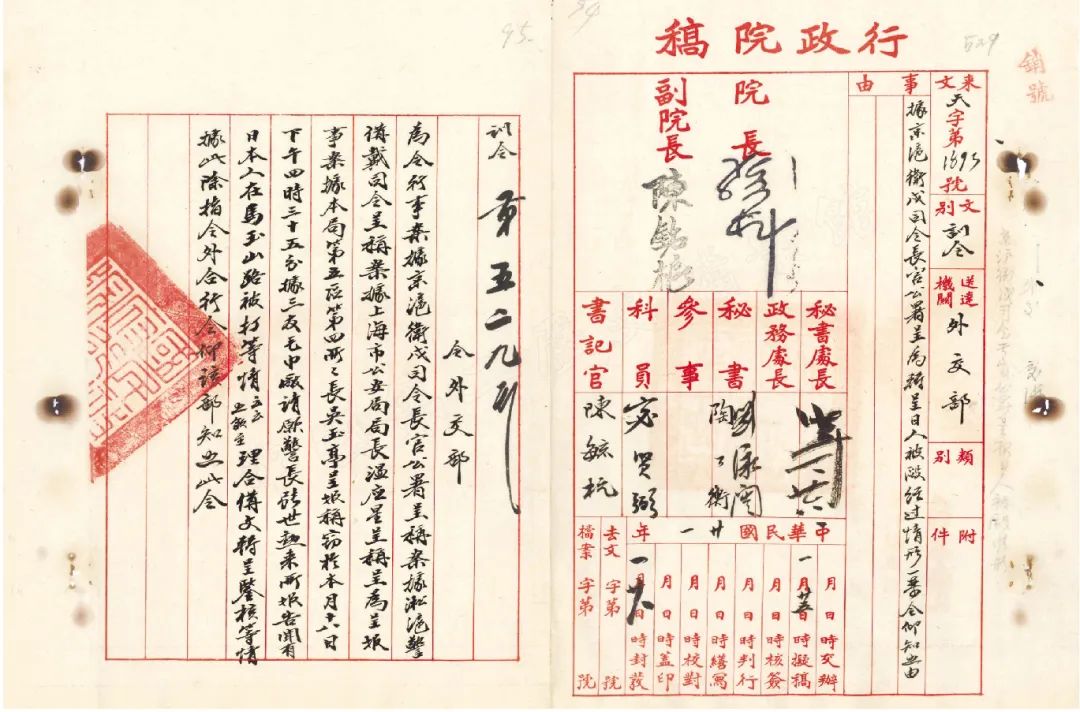 行政院稿
529
銷號
來文 天字第1695號
文別 訓令
送達機關 外交部
類別
附件
事由
據京滬衛戍司令長官公署呈為轉呈日人被毆經過情形一案令仰知照由
院長
副院長 陳銘樞
秘書處長
政務處長
秘書 陶
參事
科員
書記官 陳毓杭
中華民國廿一年
月日時交辦
一月廿五日時擬稿
月日時核簽
月日時判行
月日時繕寫
月日時校對
月日時蓋印
一月廿八日時封發
去文 字第 號
檔案 字第 號
94
95
訓令 第五二九號
令外交部
為令行事案據京滬衛戍司令長官公署呈稱案據淞滬警
備戴司令呈稱案據上海市公安局局長溫應星呈稱呈為呈報
事案據本局第五區第四所所長吳玉亭呈報稱竊於本月十八日
下午四時三十五分據三友毛巾廠請願警長張世勳來所報告聞有
日本人在馬玉山路被打等情云云 理合備文轉呈鑒核等情
據此除指令外合行令仰該部知照此令